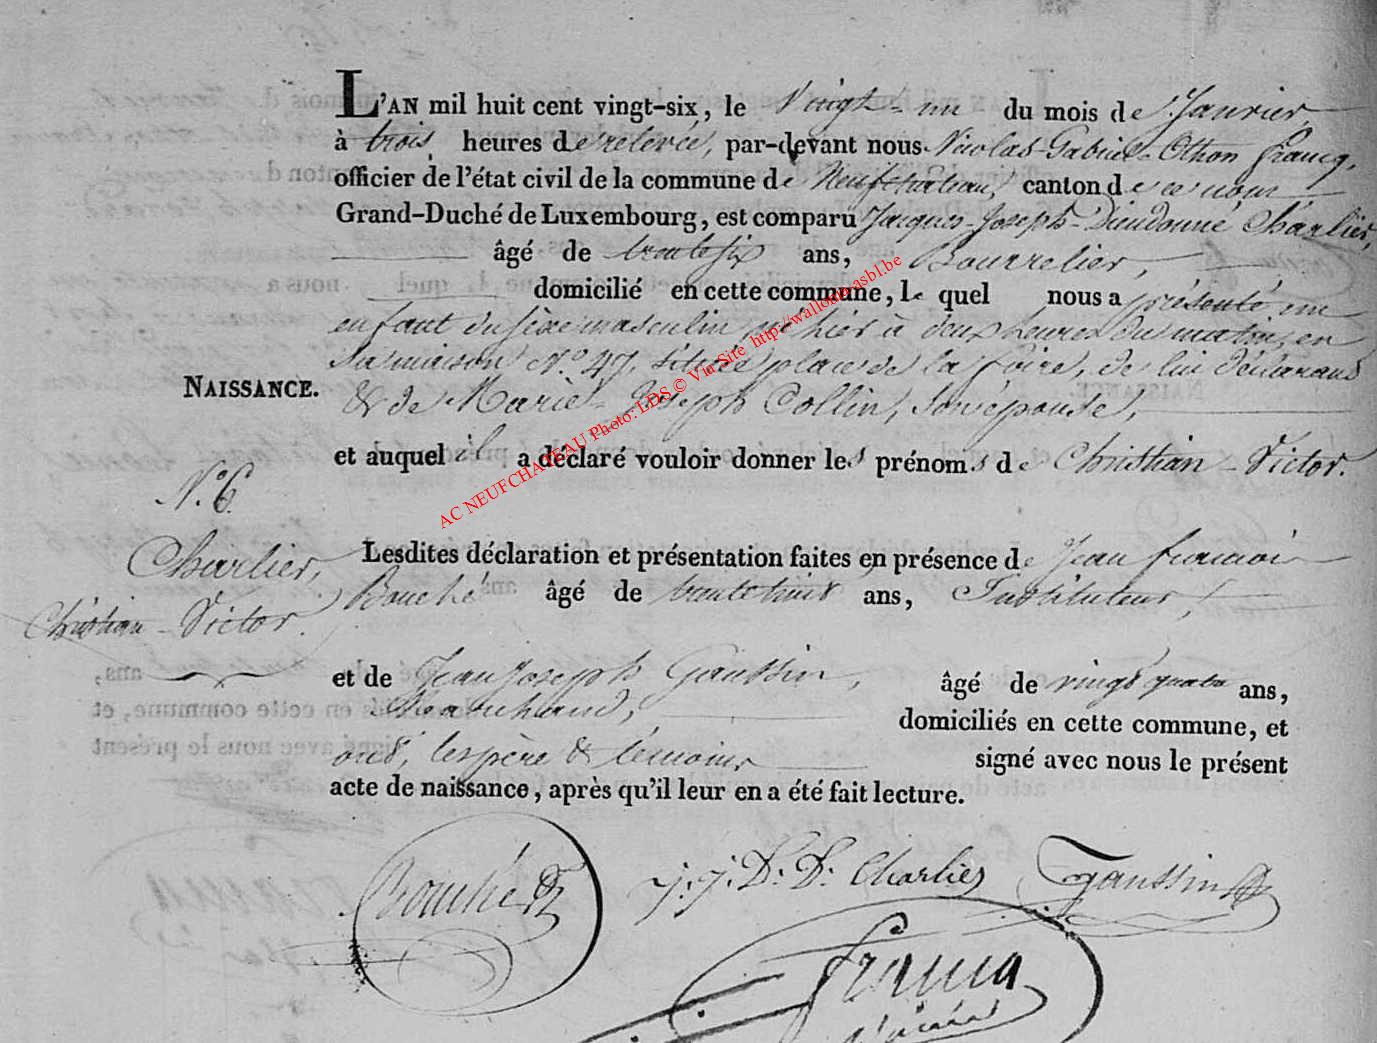 L'AN mil huit cent vingt-six, le Vingt-un du mois de Janvier,
à trois heures de relevée, par-devant nous Nicolas-Gabriel-Othon Francq,
officier de l'état civil de la commune de Neufchateau, canton de ce nom
Grand-Duché de Luxembourg, est comparu Jacques-Joseph-Dieudonné Charlier,
âgé de trente six ans, Bourrelier,
domicilié en cette commune, le quel nous a présenté un
enfant du sèxe masculin, né hier à deux heures du matin, en
sa maison N.º 47, située place de la foire, de lui déclarant
NAISSANCE.
& de Marie-Joseph Collin, son épouse,
et auquel il a déclaré vouloir donner les prénoms de Christian-Victor.
N.º 6.
Charlier,
Christian-Victor.
Lesdites déclaration et présentation faites en présence de Jean françois
Bouché âgé de trente huit ans, Instituteur,
et de Jean Joseph Gaussin, âgé de vingt quatre ans,
Marchand, domiciliés en cette commune, et
ont, les père & témoins signé avec nous le présent
acte de naissance, après qu'il leur en a été fait lecture.
Bouché
J. J. D. D. Charlier
Gaussin
Francq
AC NEUFCHATEAU Photo: LDS © Via Site http://wallonia-asbl.be